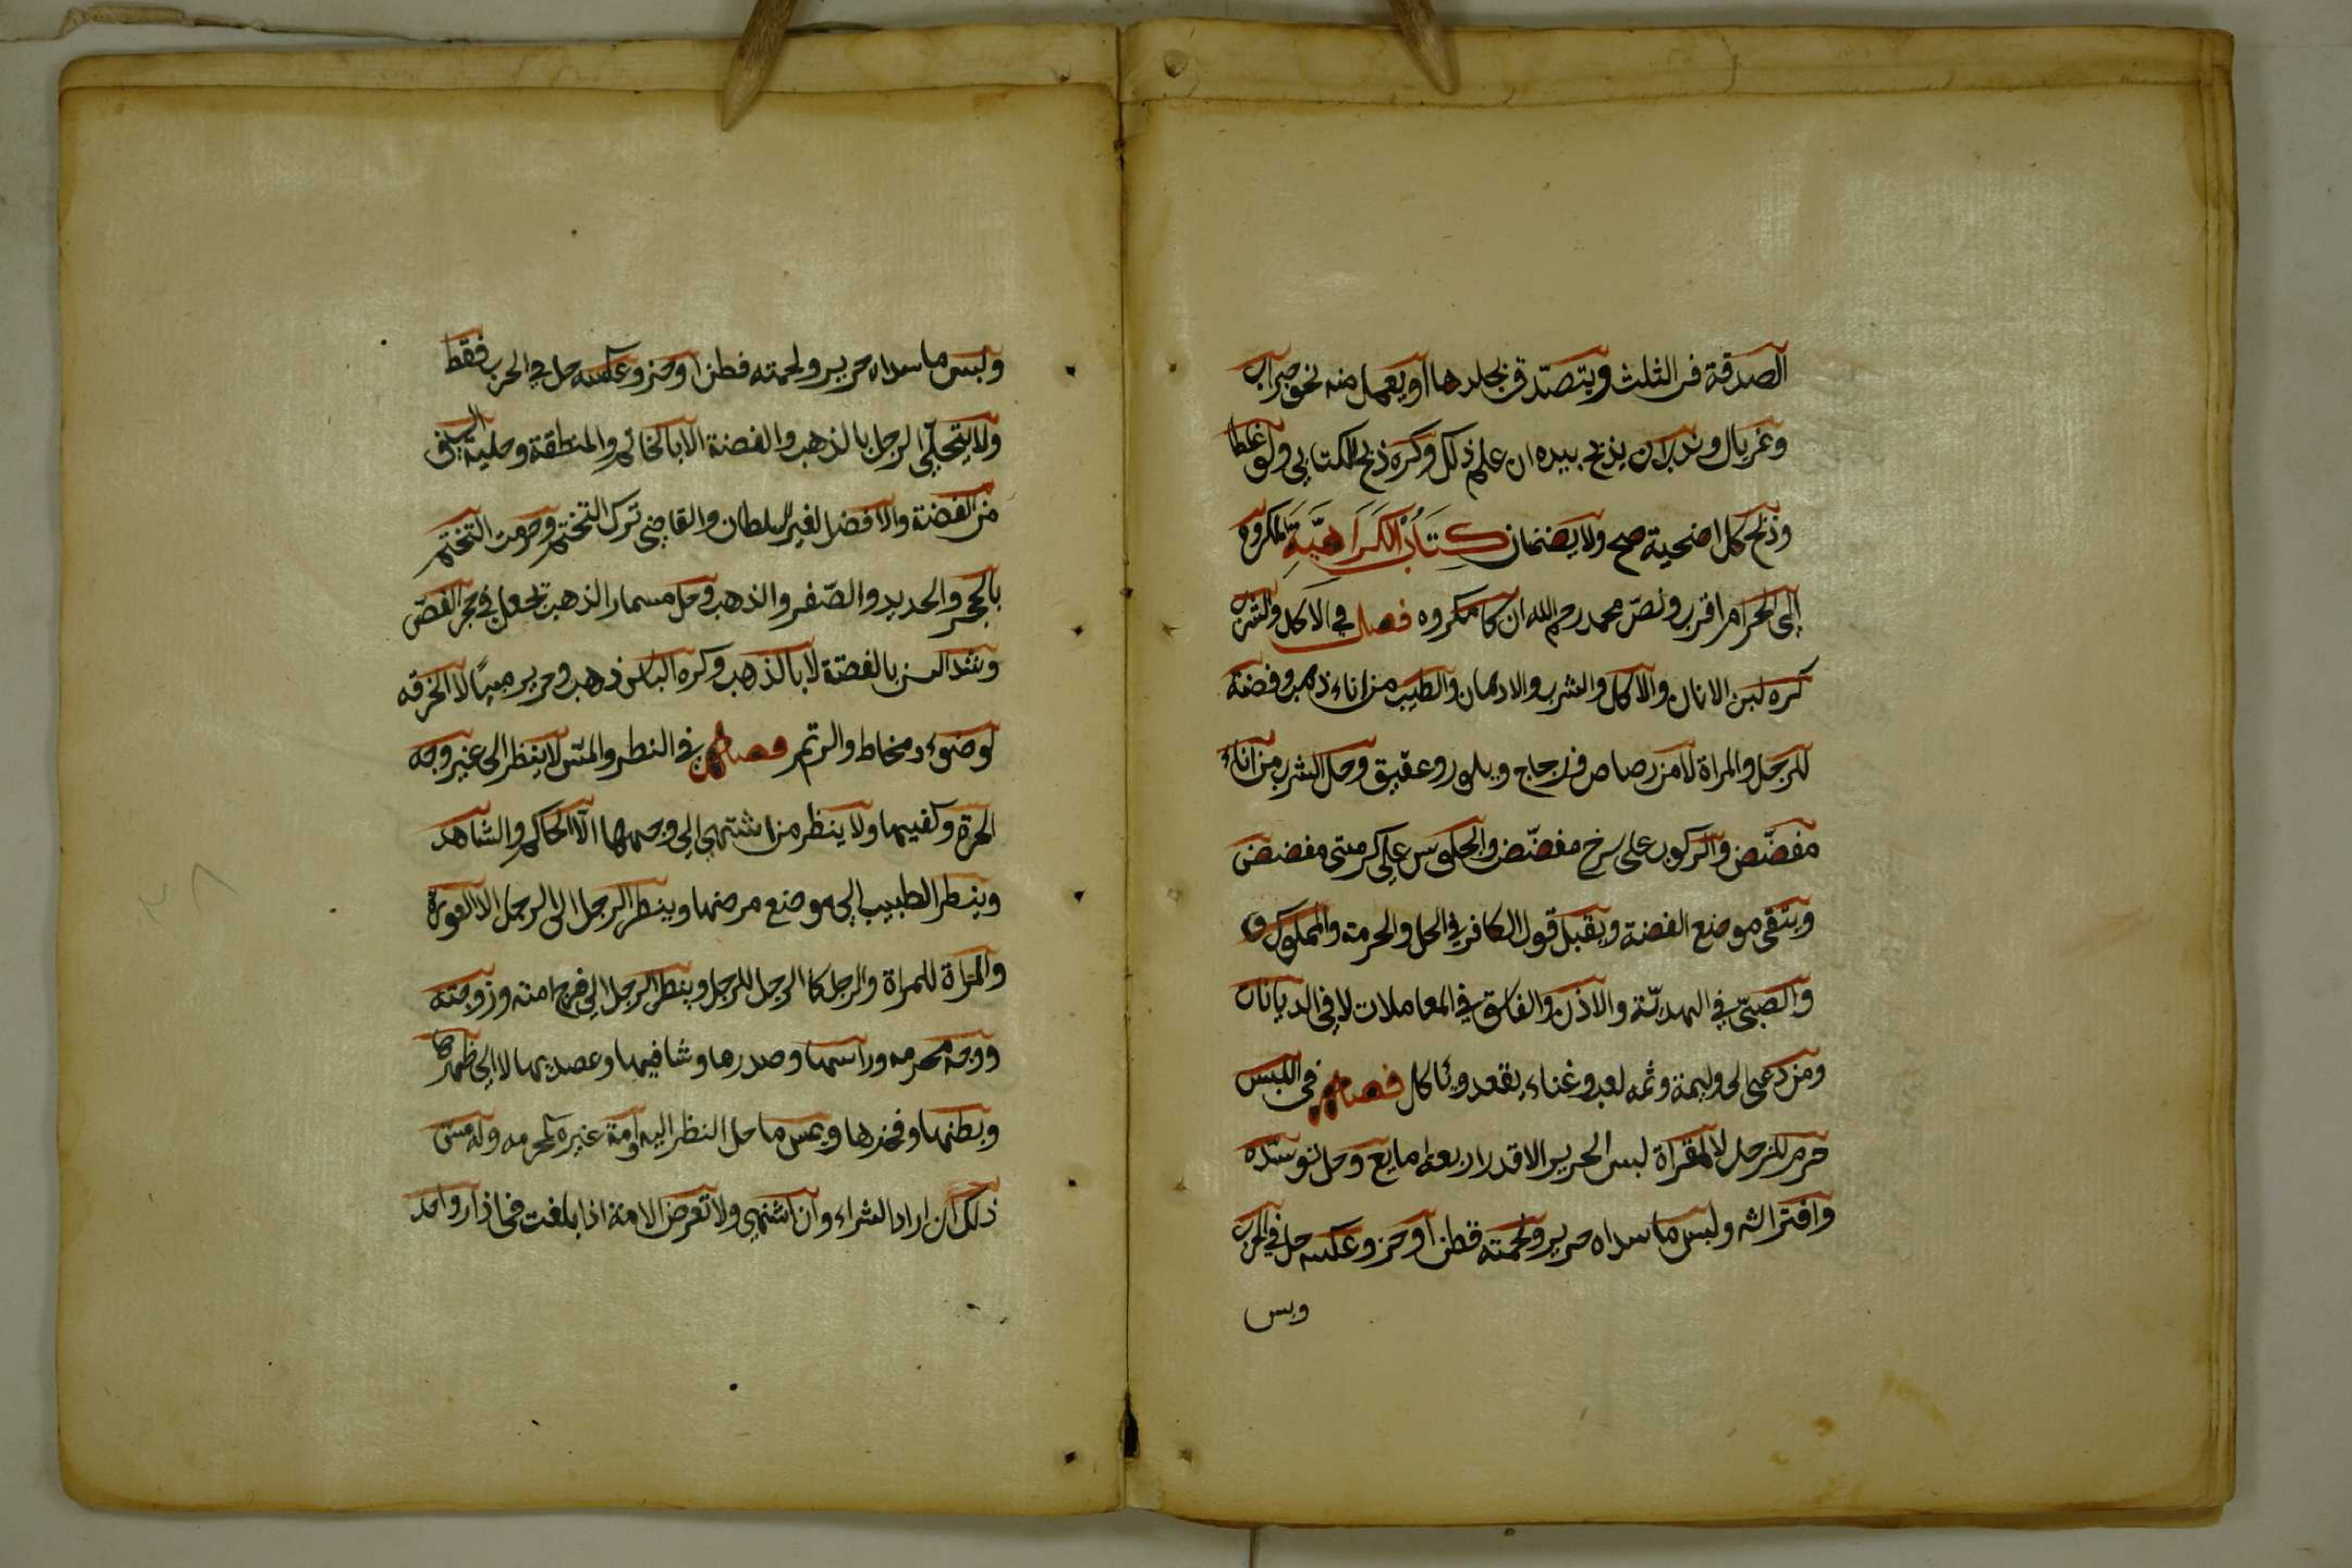 الصدقة فى الثلث ويتصدّق بجلدها او يعمل منه نحو جراب
وغربال وندب ان يذبح بيده ان علم ذلك وكره ذبح الكتابي ولو غلطا
وذبح كل اضحية صح ولا يضمنان كِتَابُ الكَرَاهيَّةِ المكروه
إلى الحرام اقرب ونصّ محمد رحمه الله ان كل مكروه فصل في الأكل والشرب
كره لبن الاتان والأكل والشرب والادهان والطيب من اناء ذهب وفضة
للرجل والمراة لا من رصاص وزجاج وبلور وعقيق وحل الشرب من اناء
مفضّض والركوب على سرج مفضّض والجلوس على كرسي مفضض
ويتقى موضع الفضة ويقبل قول الكافر في الحل والحرمة والمملوك و
والصبيّ في الهديّة والاذن والفاسق في المعاملات لا في الديانات
ومن دعى الى وليمة وثمه لعب وغناء يقعد وياكل فصل فى اللبس
حرم للرجل لا للمراة لبس الحرير الا قدر اربعة اصابع وحل توسّده
وافتراشه ولبس ما سداه حرير ولحمته قطن او خز وعكسه حل في الحرب
ولبس ما سداه حرير ولحمته قطن او خز وعكسه حل في الحرب فقط
ولا يتحلّى الرجل بالذهب والفضة الا بالخاتم والمنطقة وحلية السيف
من الفضة والافضل لغير السلطان والقاضي ترك التختم وحرمت التختم
بالحجر والحديد والصّفر والذهب وحل مسمار الذهب تجعل في حجر الفصّ
وشد السن بالفضّة لا بالذهب وكره الباس ذهب وحرير صبيًا لا الخرقه
لوضوء ومخاط والرتم فصل في النظر والمسّ لا ينظر الى غير وجه
الحرة وكفيها ولا ينظر من اشتهى إلى وجهها الّا الحاكم والشاهد
وينظر الطبيب إلى موضع مرضها وينظر الرجل الى الرجل الا العورة
والمراة للمراة والرجل كالرجل للرجل وينظر الرجل إلى فرج امته وزوجته
ووجه محرمه وراسها وصدرها وساقيها وعضديها لا إلى ظهرها
وبطنها وفخذها ويمس ما حل النظر اليه وامة غيره كمحرمه وله مس
ذلك ان اراد الشراء وان اشتهى ولا تعرض الامة اذا بلغت فى ازار واحد